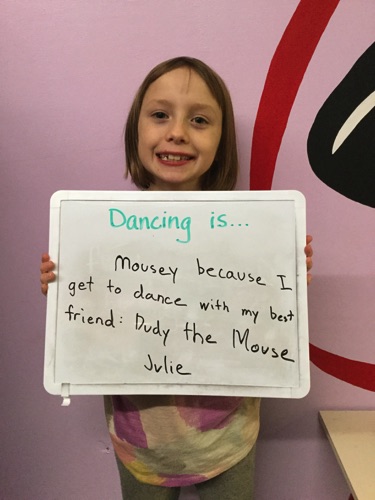 Dancing is...
Mousey because I
get to dance with my best
friend: Dudy the Mouse
Julie